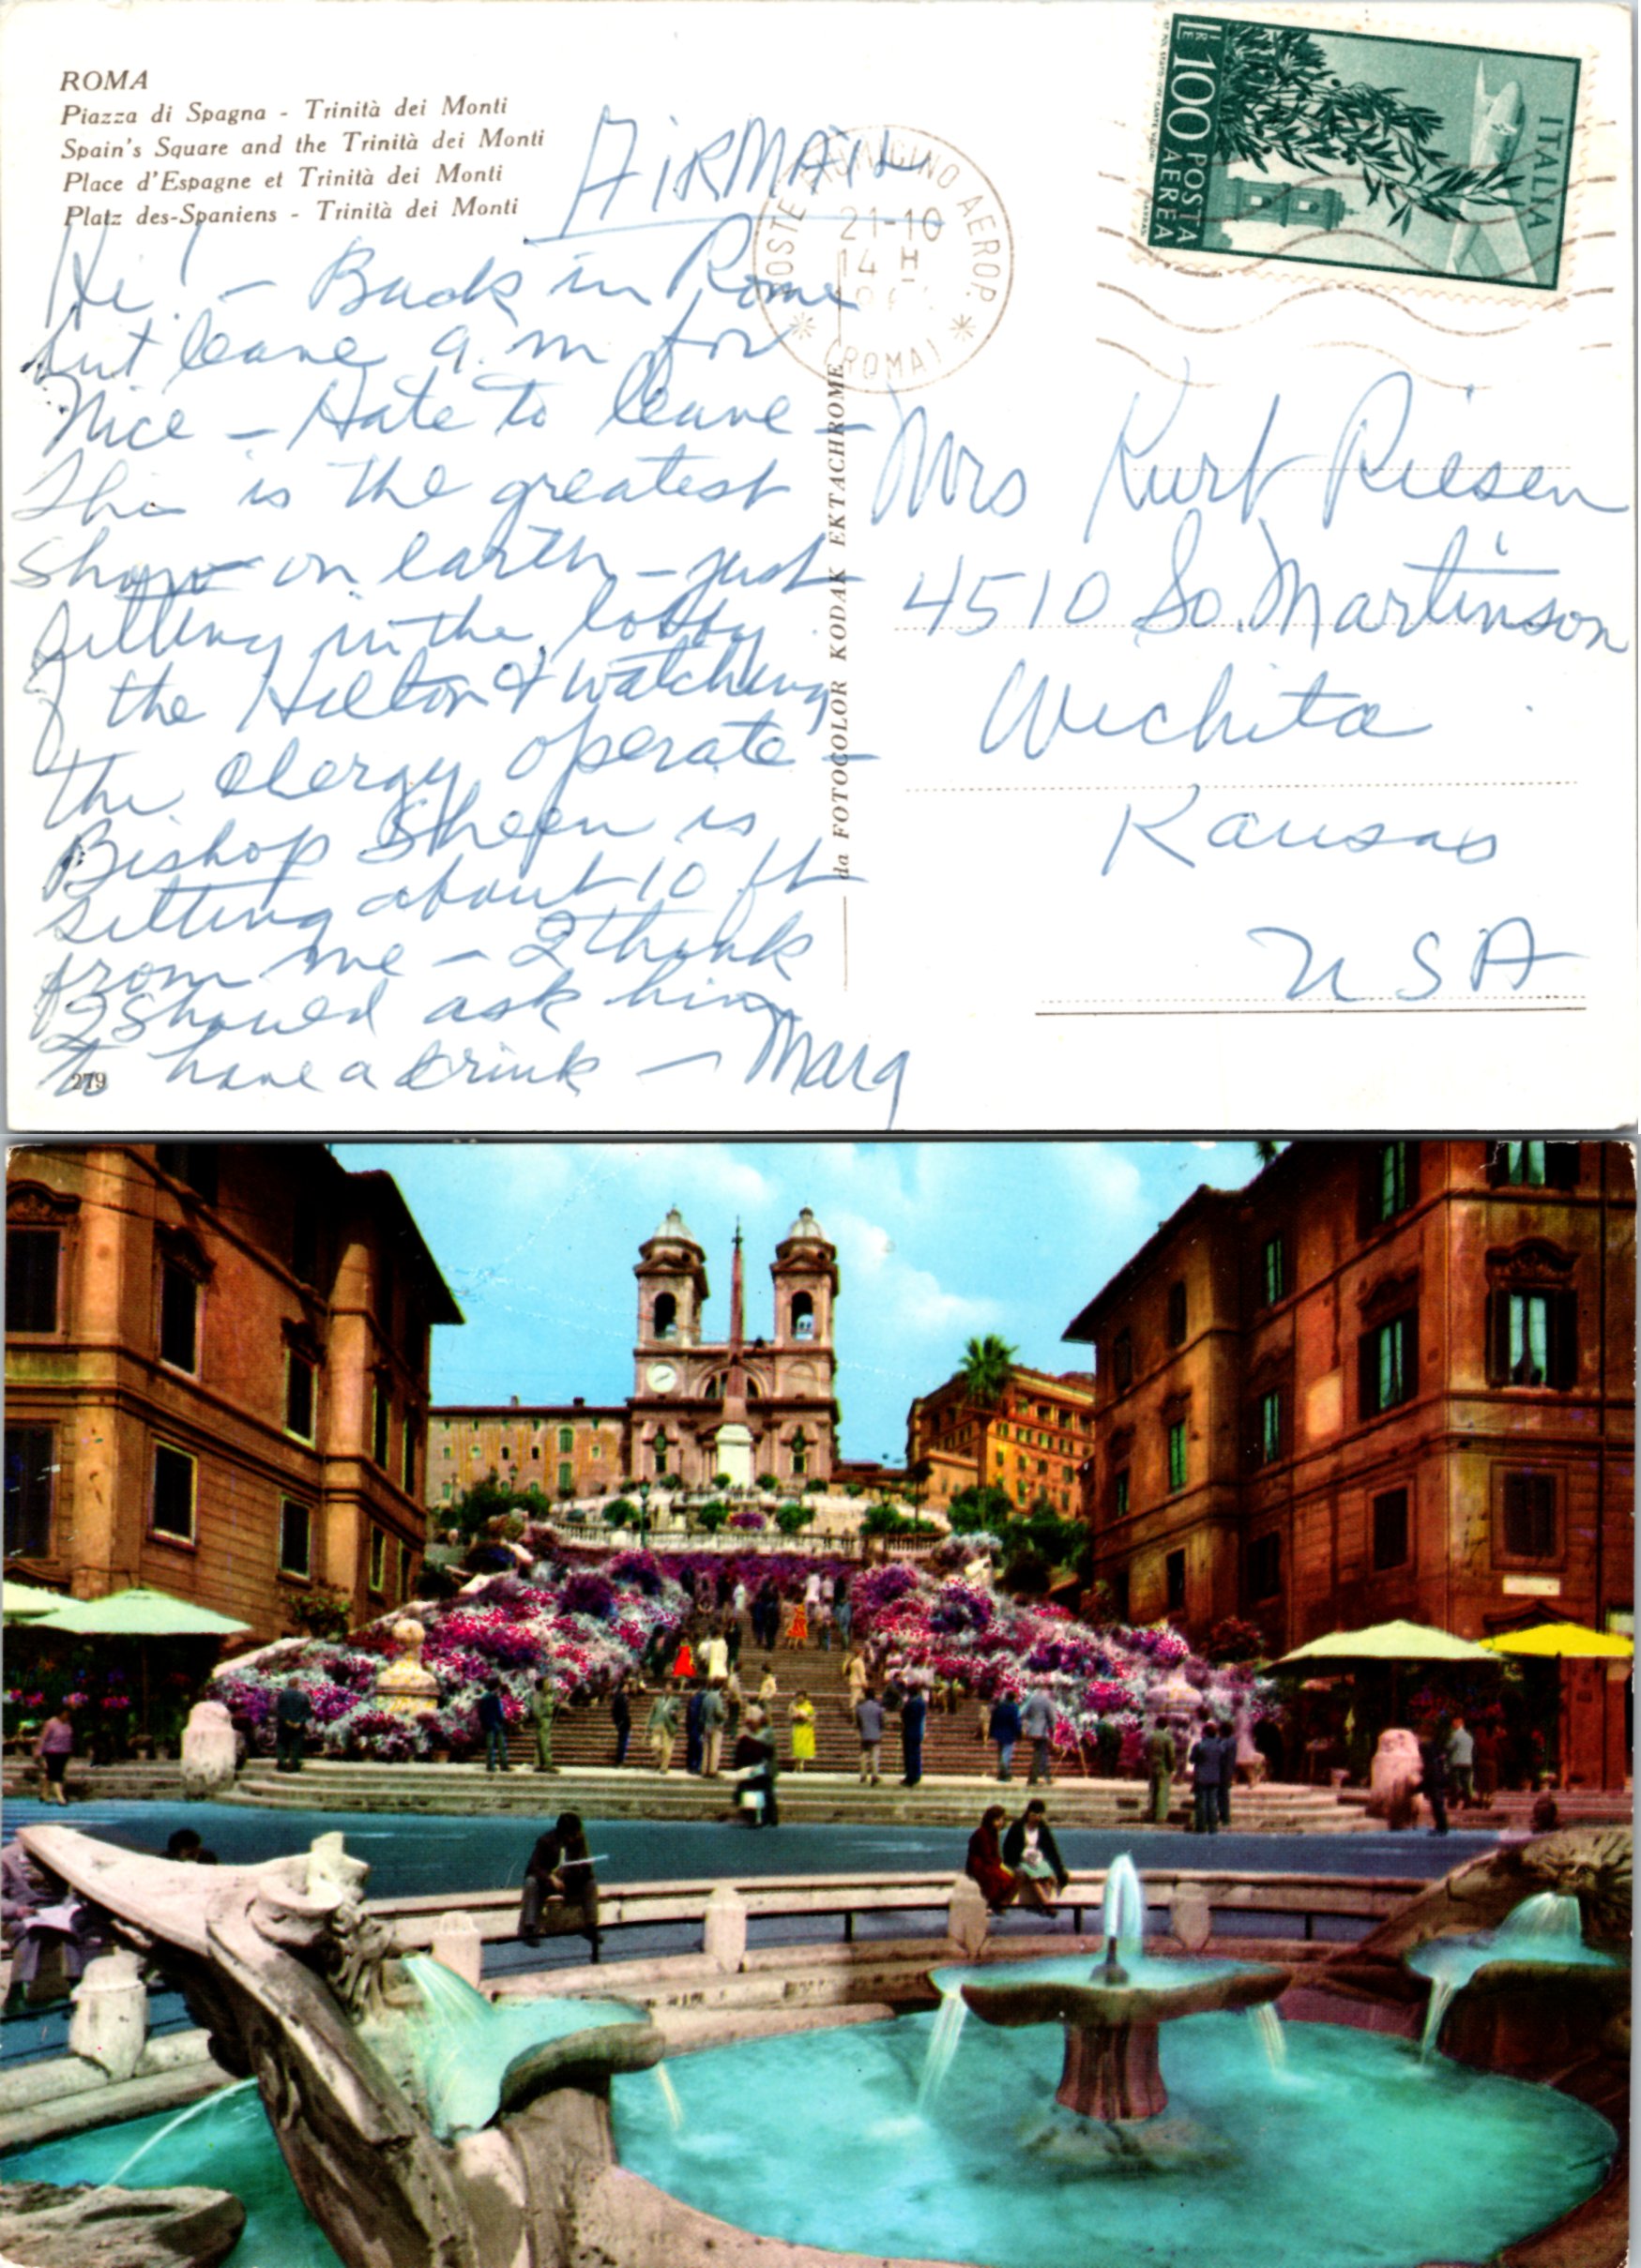 ROMA
Piazza di Spagna - Trinità dei Monti
Spain's Square and the Trinità dei Monti
Place d'Espagne et Trinità dei Monti
Platz des-Spaniens - Trinità dei Monti
AIRMAIL
POSTE FIUMICINO AEROP.
21-10
14 H
(ROMA)
LIRE 100 POSTA AEREA
ITALIA
Hi! - Back in Rome
but leave a.m for
Nice - Hate to leave -
This is the greatest
show on earth - just
sitting in the lobby
of the Hilton & watching
the clergy operate -
Bishop Sheen is
sitting about 10 ft
from me - I think
I should ask him
to have a drink - Marg
279
da FOTOCOLOR KODAK EKTACHROME
Mrs Kurt Riesen
4510 So. Martinson
Wichita
Kansas
USA